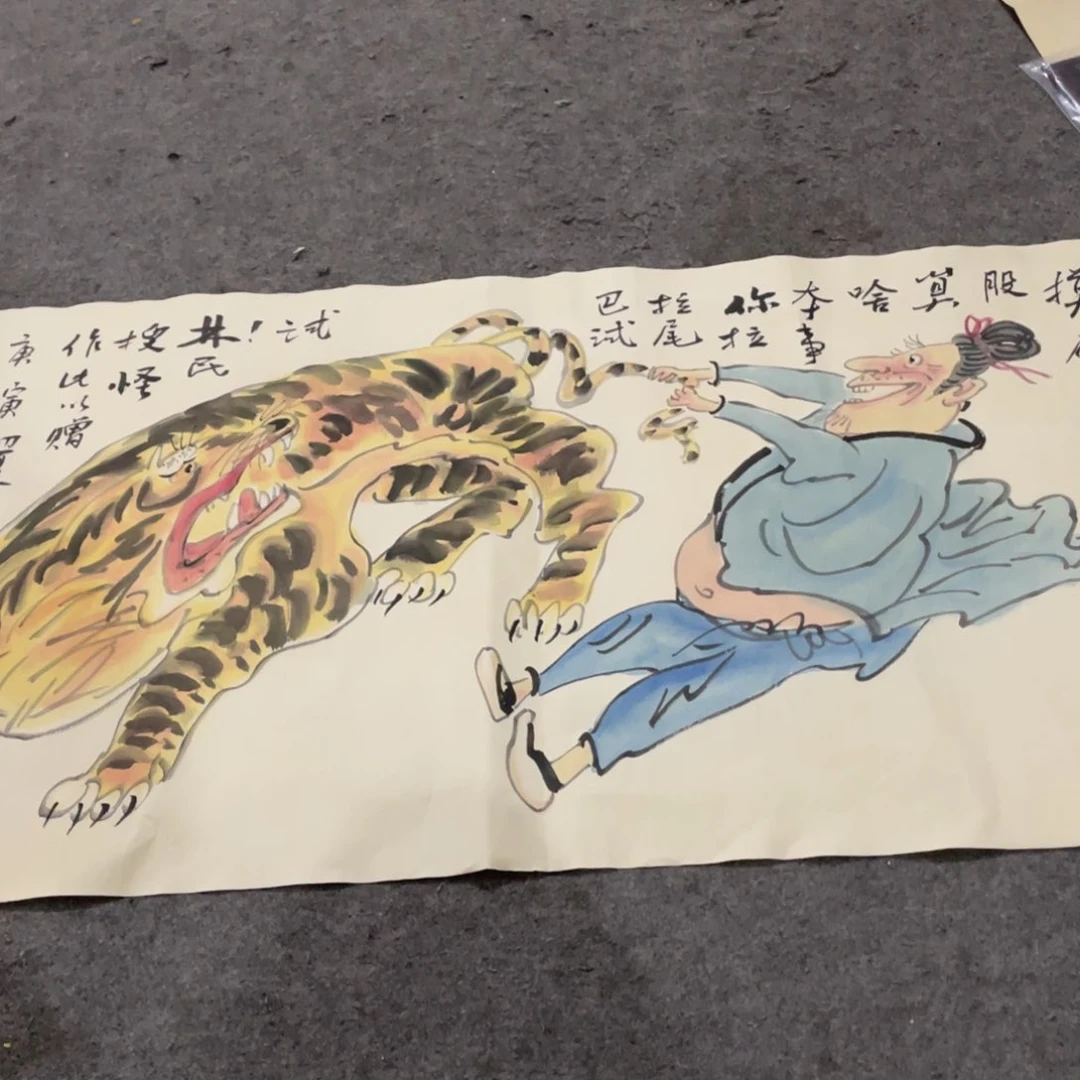 摸
股
算
啥
本事
你拉
拉尾
巴试
试
!
林民
搜怪
作此以赠
庚寅